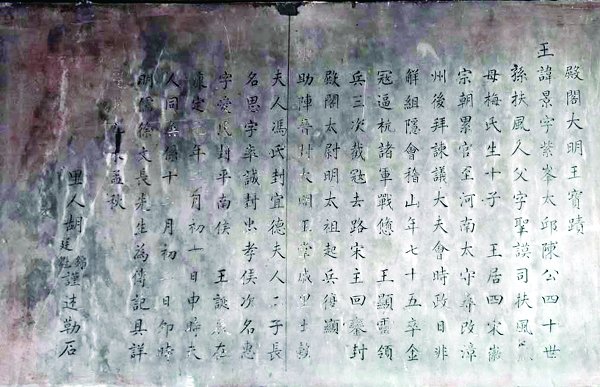 殿閣大明王實蹟
王諱景字紫峯太邱陳公四十世
孫扶風人父字聖謨司扶風
母梅氏生十子 王居四宋徽
宗朝累官至河南太守尋改漳
州後拜諫議大夫會時政日非
解組隱會稽山年七十五卒金
冦逼杭諸軍戰憊 王顯靈領
兵三次截 去路宋主回鑾封
殿閣太尉明太祖起兵得顯
助陣 封大明王 里
夫人馮氏封宜德夫人二子長
名思字率誠封忠孝侯次名惠
字愛 封平南侯 王誕 在
康定 年二月初十日申時夫
人同 十 月初 日卯時
明儒徐文長先生為傳記具詳
孟秋
里人胡廷 錦謹述勒石